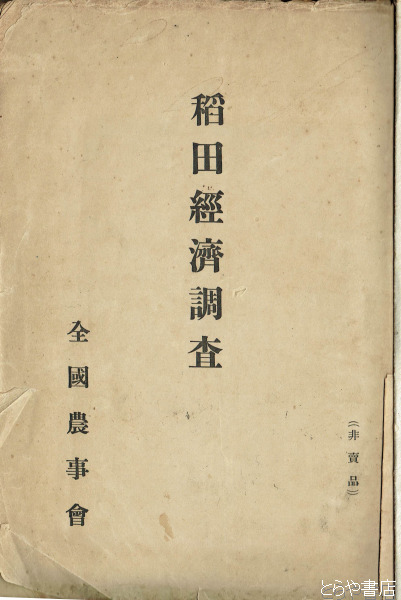 （非賣品）
稻田經濟調査
全國農事會
とらや書店